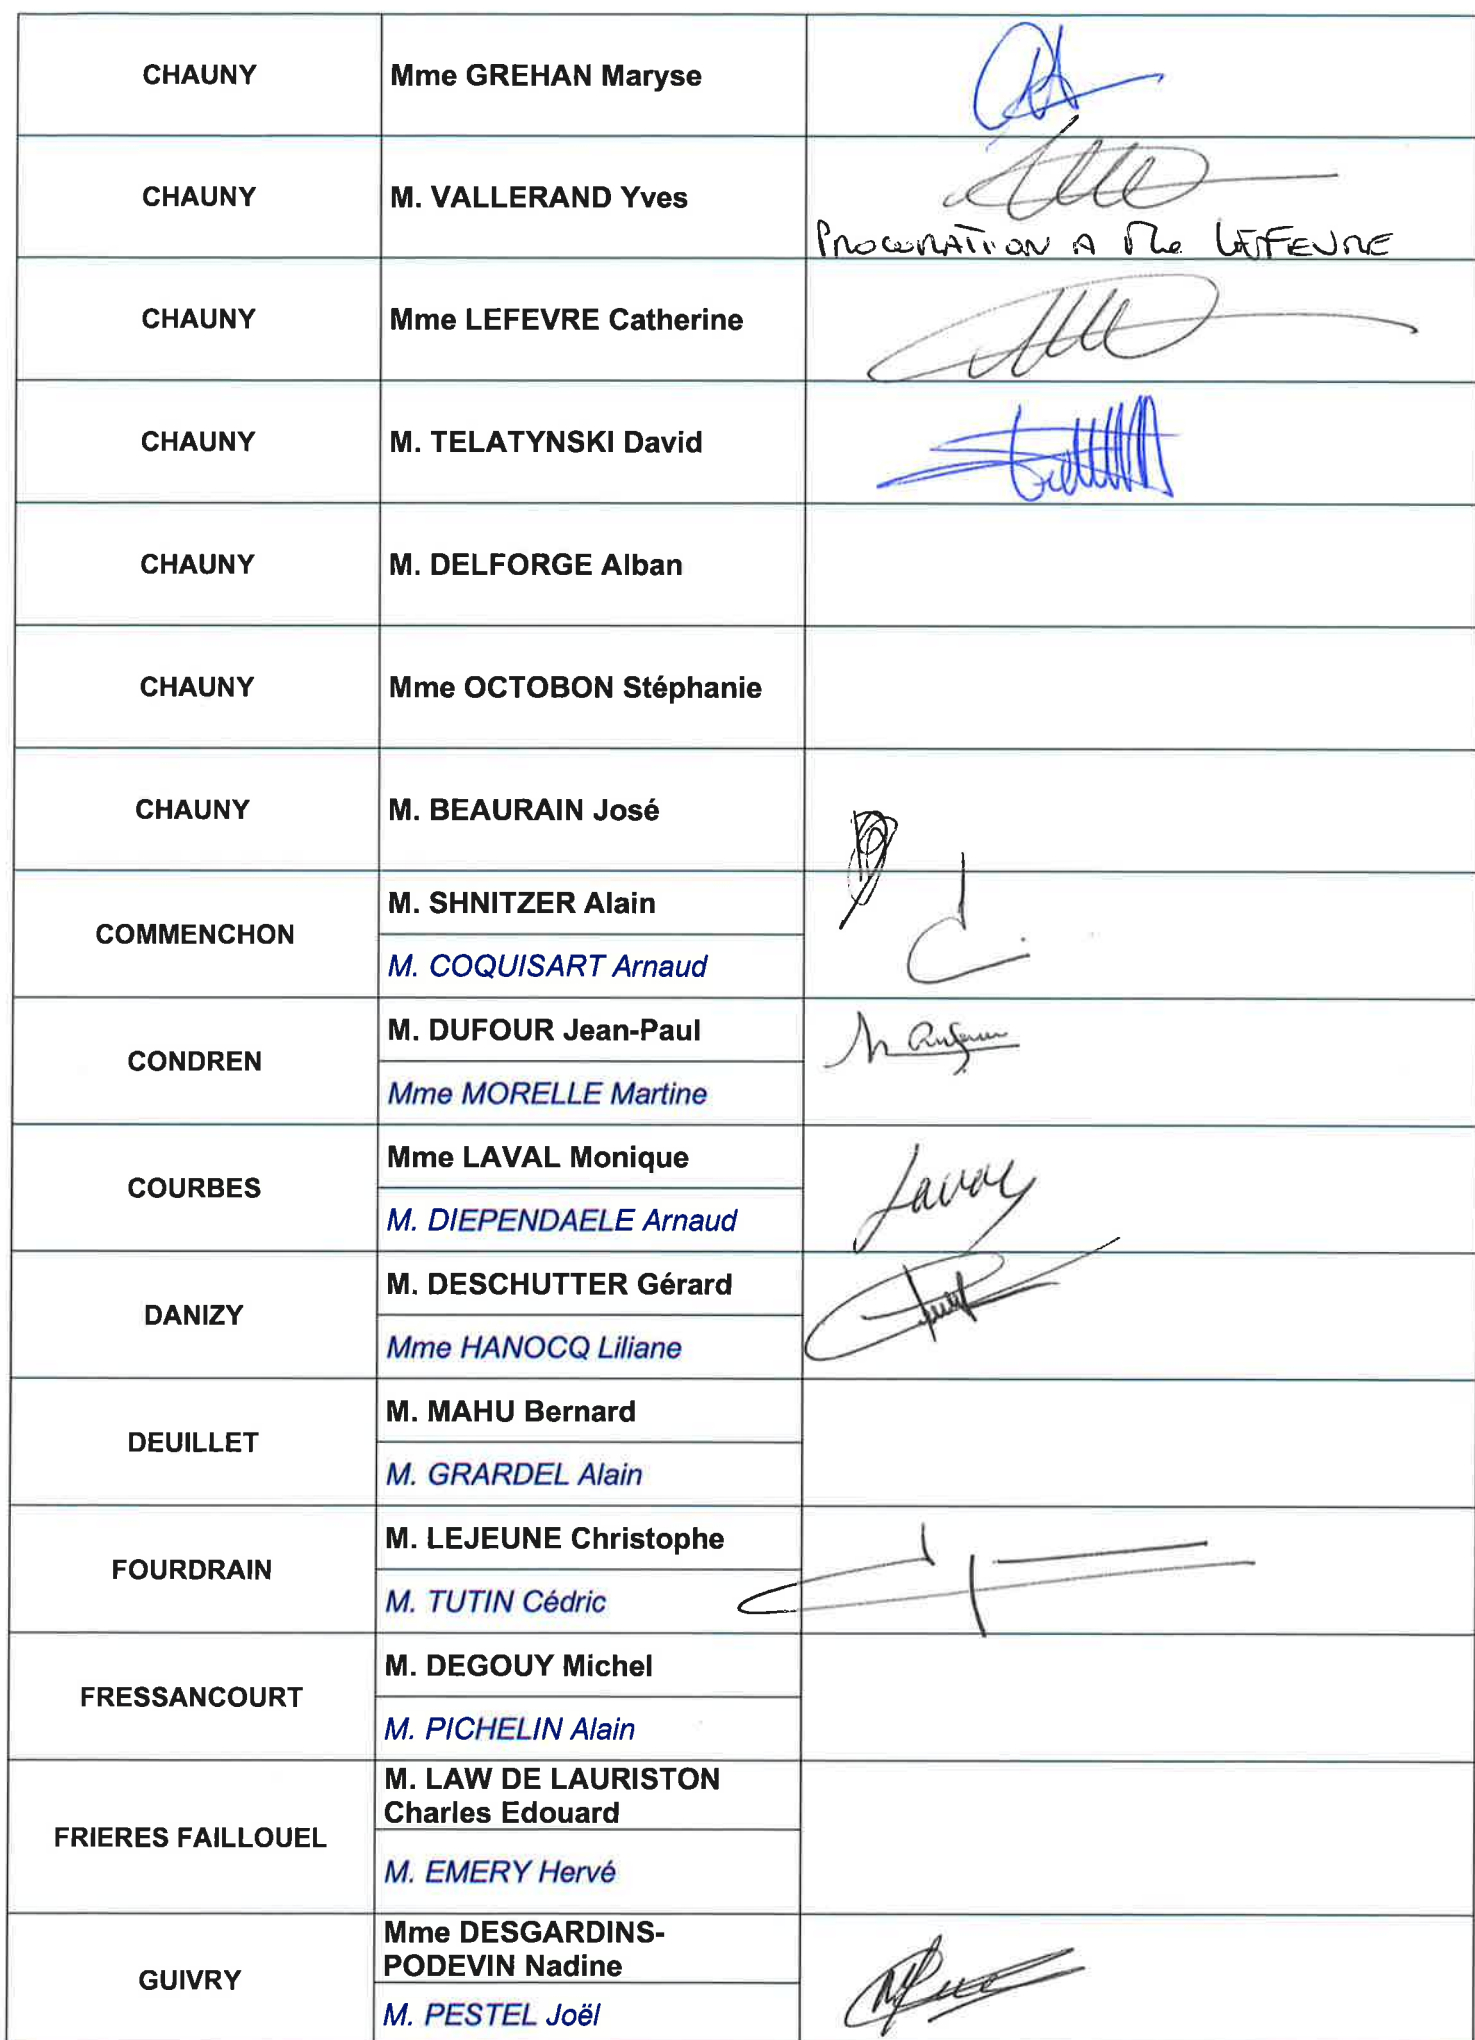 CHAUNY
Mme GREHAN Maryse
CHAUNY
M. VALLERAND Yves
PROCURATION A Mme LEFEVRE
CHAUNY
Mme LEFEVRE Catherine
CHAUNY
M. TELATYNSKI David
CHAUNY
M. DELFORGE Alban
CHAUNY
Mme OCTOBON Stéphanie
CHAUNY
M. BEAURAIN José
COMMENCHON
M. SHNITZER Alain
M. COQUISART Arnaud
CONDREN
M. DUFOUR Jean-Paul
Mme MORELLE Martine
COURBES
Mme LAVAL Monique
M. DIEPENDAELE Arnaud
DANIZY
M. DESCHUTTER Gérard
Mme HANOCQ Liliane
DEUILLET
M. MAHU Bernard
M. GRARDEL Alain
FOURDRAIN
M. LEJEUNE Christophe
M. TUTIN Cédric
FRESSANCOURT
M. DEGOUY Michel
M. PICHELIN Alain
FRIERES FAILLOUEL
M. LAW DE LAURISTON
Charles Edouard
M. EMERY Hervé
GUIVRY
Mme DESGARDINS-
PODEVIN Nadine
M. PESTEL Joël